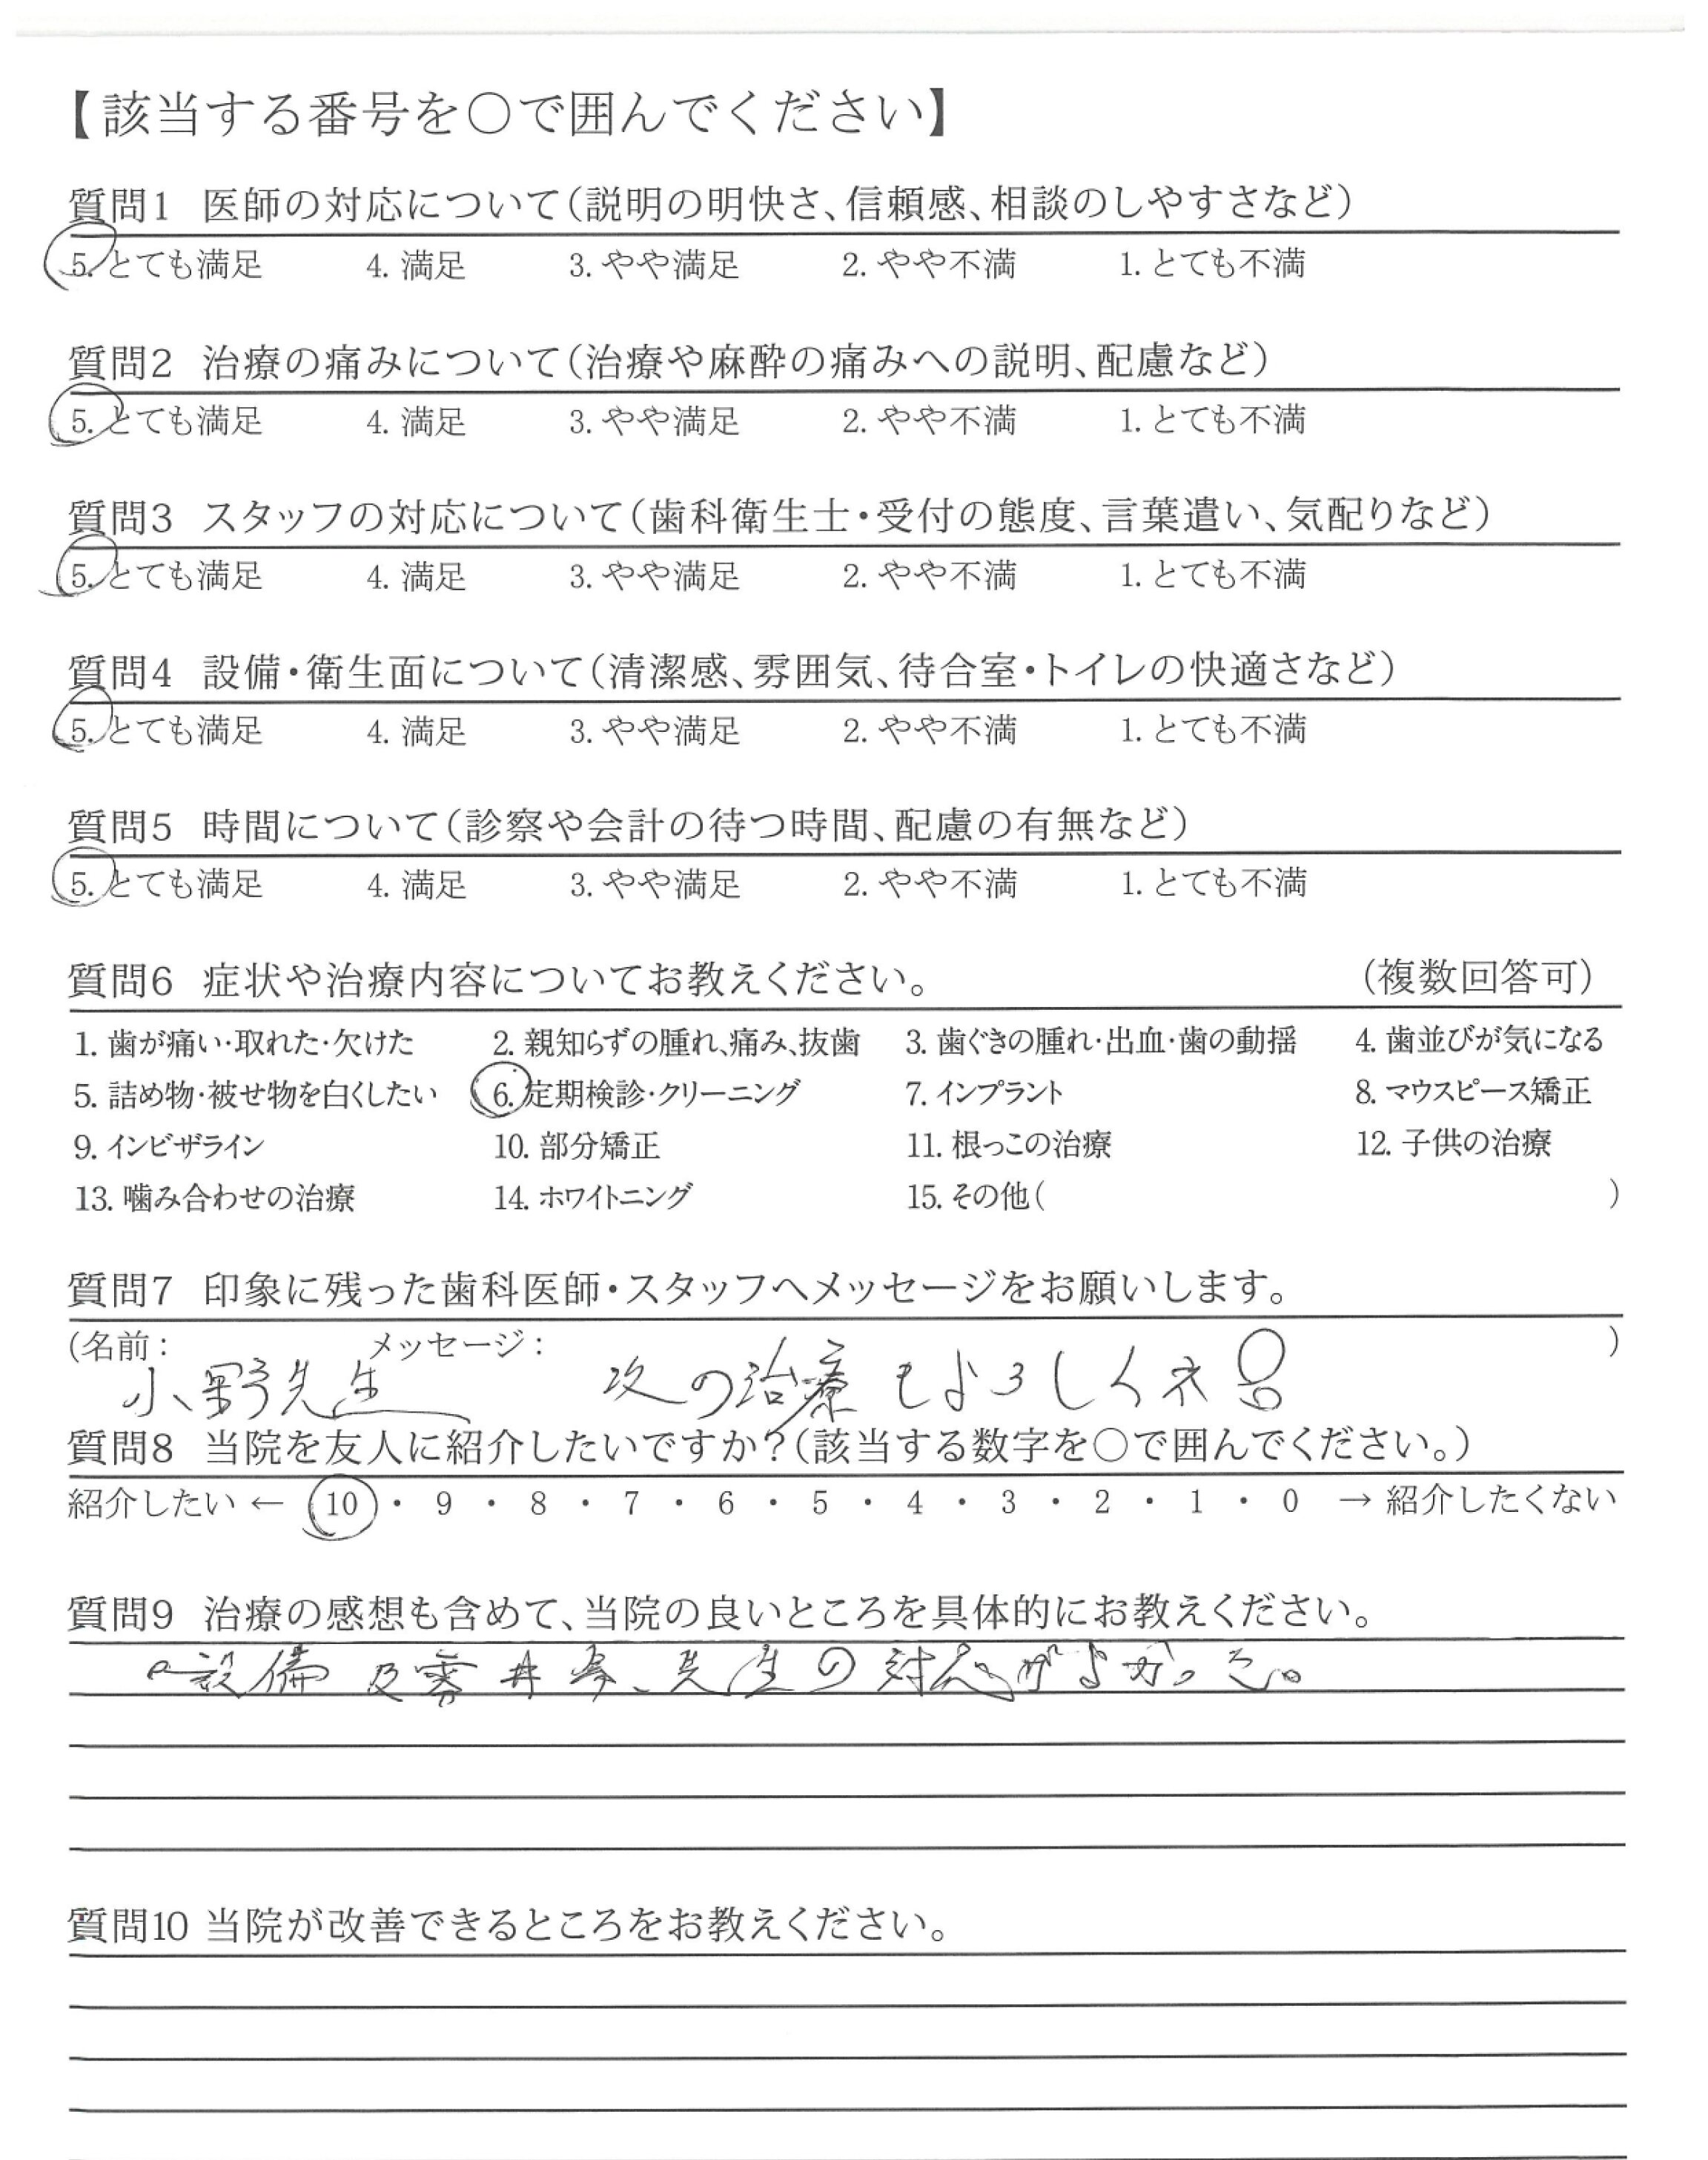 【該当する番号を○で囲んでください】
質問1 医師の対応について(説明の明快さ、信頼感、相談のしやすさなど)
5. とても満足 4. 満足 3. やや満足 2. やや不満 1. とても不満
質問2 治療の痛みについて(治療や麻酔の痛みへの説明、配慮など)
5. とても満足 4. 満足 3. やや満足 2. やや不満 1. とても不満
質問3 スタッフの対応について(歯科衛生士・受付の態度、言葉遣い、気配りなど)
5. とても満足 4. 満足 3. やや満足 2. やや不満 1. とても不満
質問4 設備・衛生面について(清潔感、雰囲気、待合室・トイレの快適さなど)
5. とても満足 4. 満足 3. やや満足 2. やや不満 1. とても不満
質問5 時間について(診察や会計の待つ時間、配慮の有無など)
5. とても満足 4. 満足 3. やや満足 2. やや不満 1. とても不満
質問6 症状や治療内容についてお教えください。 (複数回答可)
1. 歯が痛い・取れた・欠けた 2. 親知らずの腫れ、痛み、抜歯 3. 歯ぐきの腫れ・出血・歯の動揺 4. 歯並びが気になる
5. 詰め物・被せ物を白くしたい 6. 定期検診・クリーニング 7. インプラント 8. マウスピース矯正
9. インビザライン 10. 部分矯正 11. 根っこの治療 12. 子供の治療
13. 噛み合わせの治療 14. ホワイトニング 15. その他( )
質問7 印象に残った歯科医師・スタッフへメッセージをお願いします。
(名前: メッセージ: )
小野先生 次の治療もよろしくネ!
質問8 当院を友人に紹介したいですか?(該当する数字を○で囲んでください。)
紹介したい ← 10 ・ 9 ・ 8 ・ 7 ・ 6 ・ 5 ・ 4 ・ 3 ・ 2 ・ 1 ・ 0 → 紹介したくない
質問9 治療の感想も含めて、当院の良いところを具体的にお教えください。
設備及 先生の対応がよかった。
質問10 当院が改善できるところをお教えください。